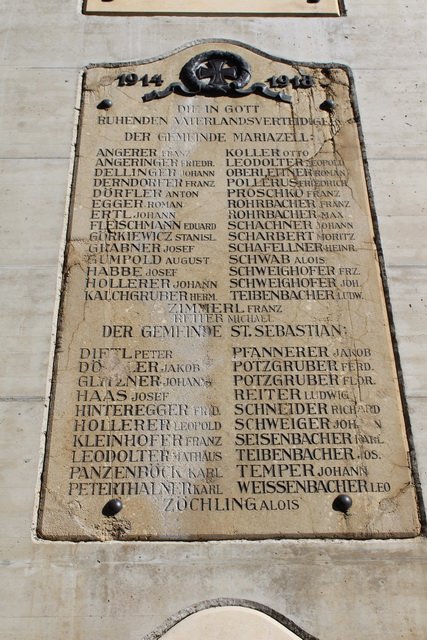 1914 1918
DIE IN GOTT
RUHENDEN VATERLANDSVERTEIDIGER
DER GEMEINDE MARIAZELL:
ANGERER FRANZ KOLLER OTTO
ANGERINGER FRIEDR. LEODOLTER LEOPOLD
DELLINGER JOHANN OBERLEITNER ROMAN
DERNDORFER FRANZ POLLERUS FRIEDRICH
DÖRFLER ANTON PROSCHKO FRANZ
EGGER ROMAN ROHRBACHER FRANZ
ERTL JOHANN ROHRBACHER MAX
FLEISCHMANN EDUARD SCHACHNER JOHANN
GÖRKIEWICZ STANISL. SCHARBERT MORITZ
GRABNER JOSEF SCHAFELLNER HEINR.
GUMPOLD AUGUST SCHWAB ALOIS
HABBE JOSEF SCHWEIGHOFER FRZ.
HOLLERER JOHANN SCHWEIGHOFER JOH.
KALCHGRUBER HERM. TEIBENBACHER LUDW.
ZIMMERL FRANZ
REITER MICHAEL
DER GEMEINDE ST. SEBASTIAN:
DIETL PETER PFANNERER JAKOB
JAKOB POTZGRUBER FERD.
GLITZNER JOHANN POTZGRUBER FLOR.
HAAS JOSEF REITER LUDWIG
HINTEREGGER SCHNEIDER RICHARD
HOLLERER LEOPOLD SCHWEIGER JOHANN
KLEINHOFER FRANZ SEISENBACHER KARL
LEODOLTER MATHÄUS TEIBENBACHER JOS.
PANZENBÖCK KARL TEMPER JOHANN
PETERTHALNER KARL WEISSENBACHER LEO
ZÖCHLING ALOIS